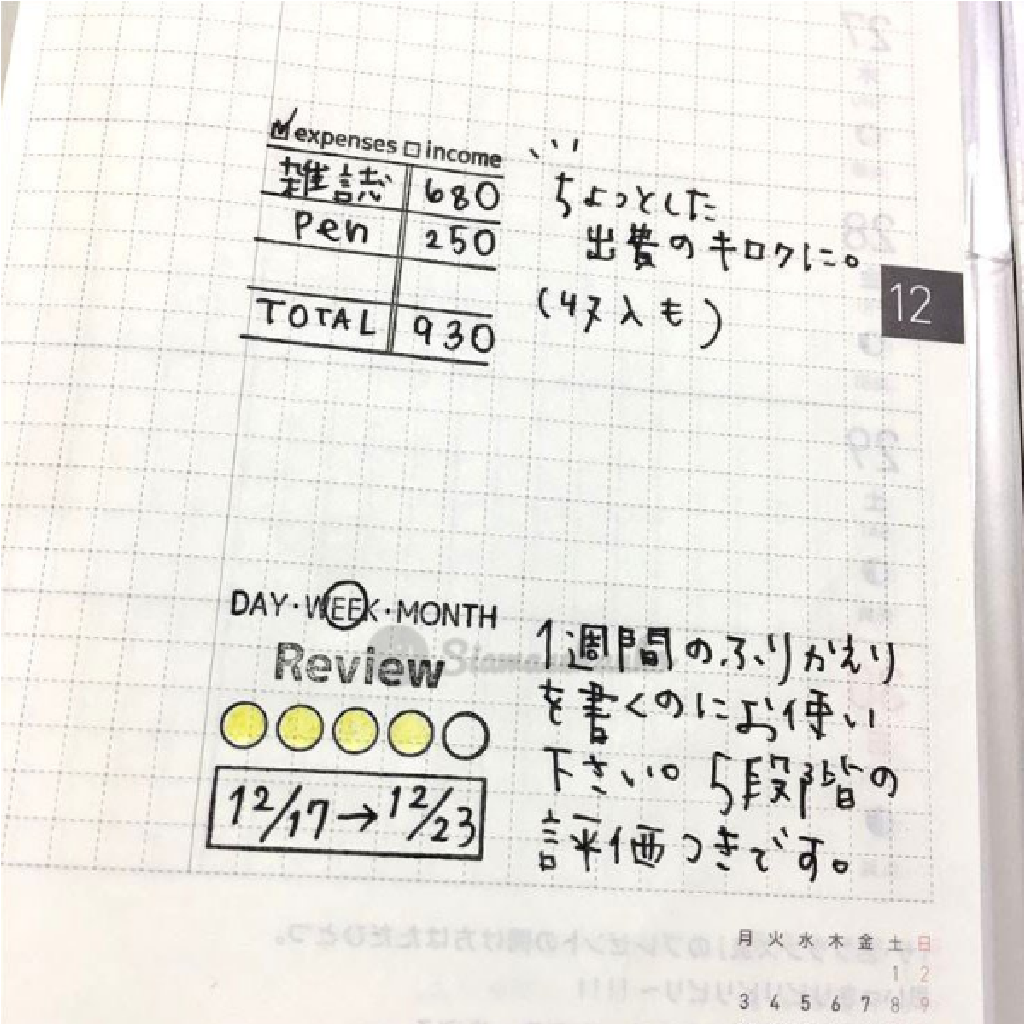 expenses □ income
雑誌 680
pen 250
TOTAL 930
ちょっとした
出費のキロクに。
(収入も)
12
DAY・WEEK・MONTH
Review
12/17→12/23
1週間のふりかえり
を書くのにお使い
下さい。5段階の
評価つきです。
月 火 水 木 金 土 日
1 2
3 4 5 6 7 8 9